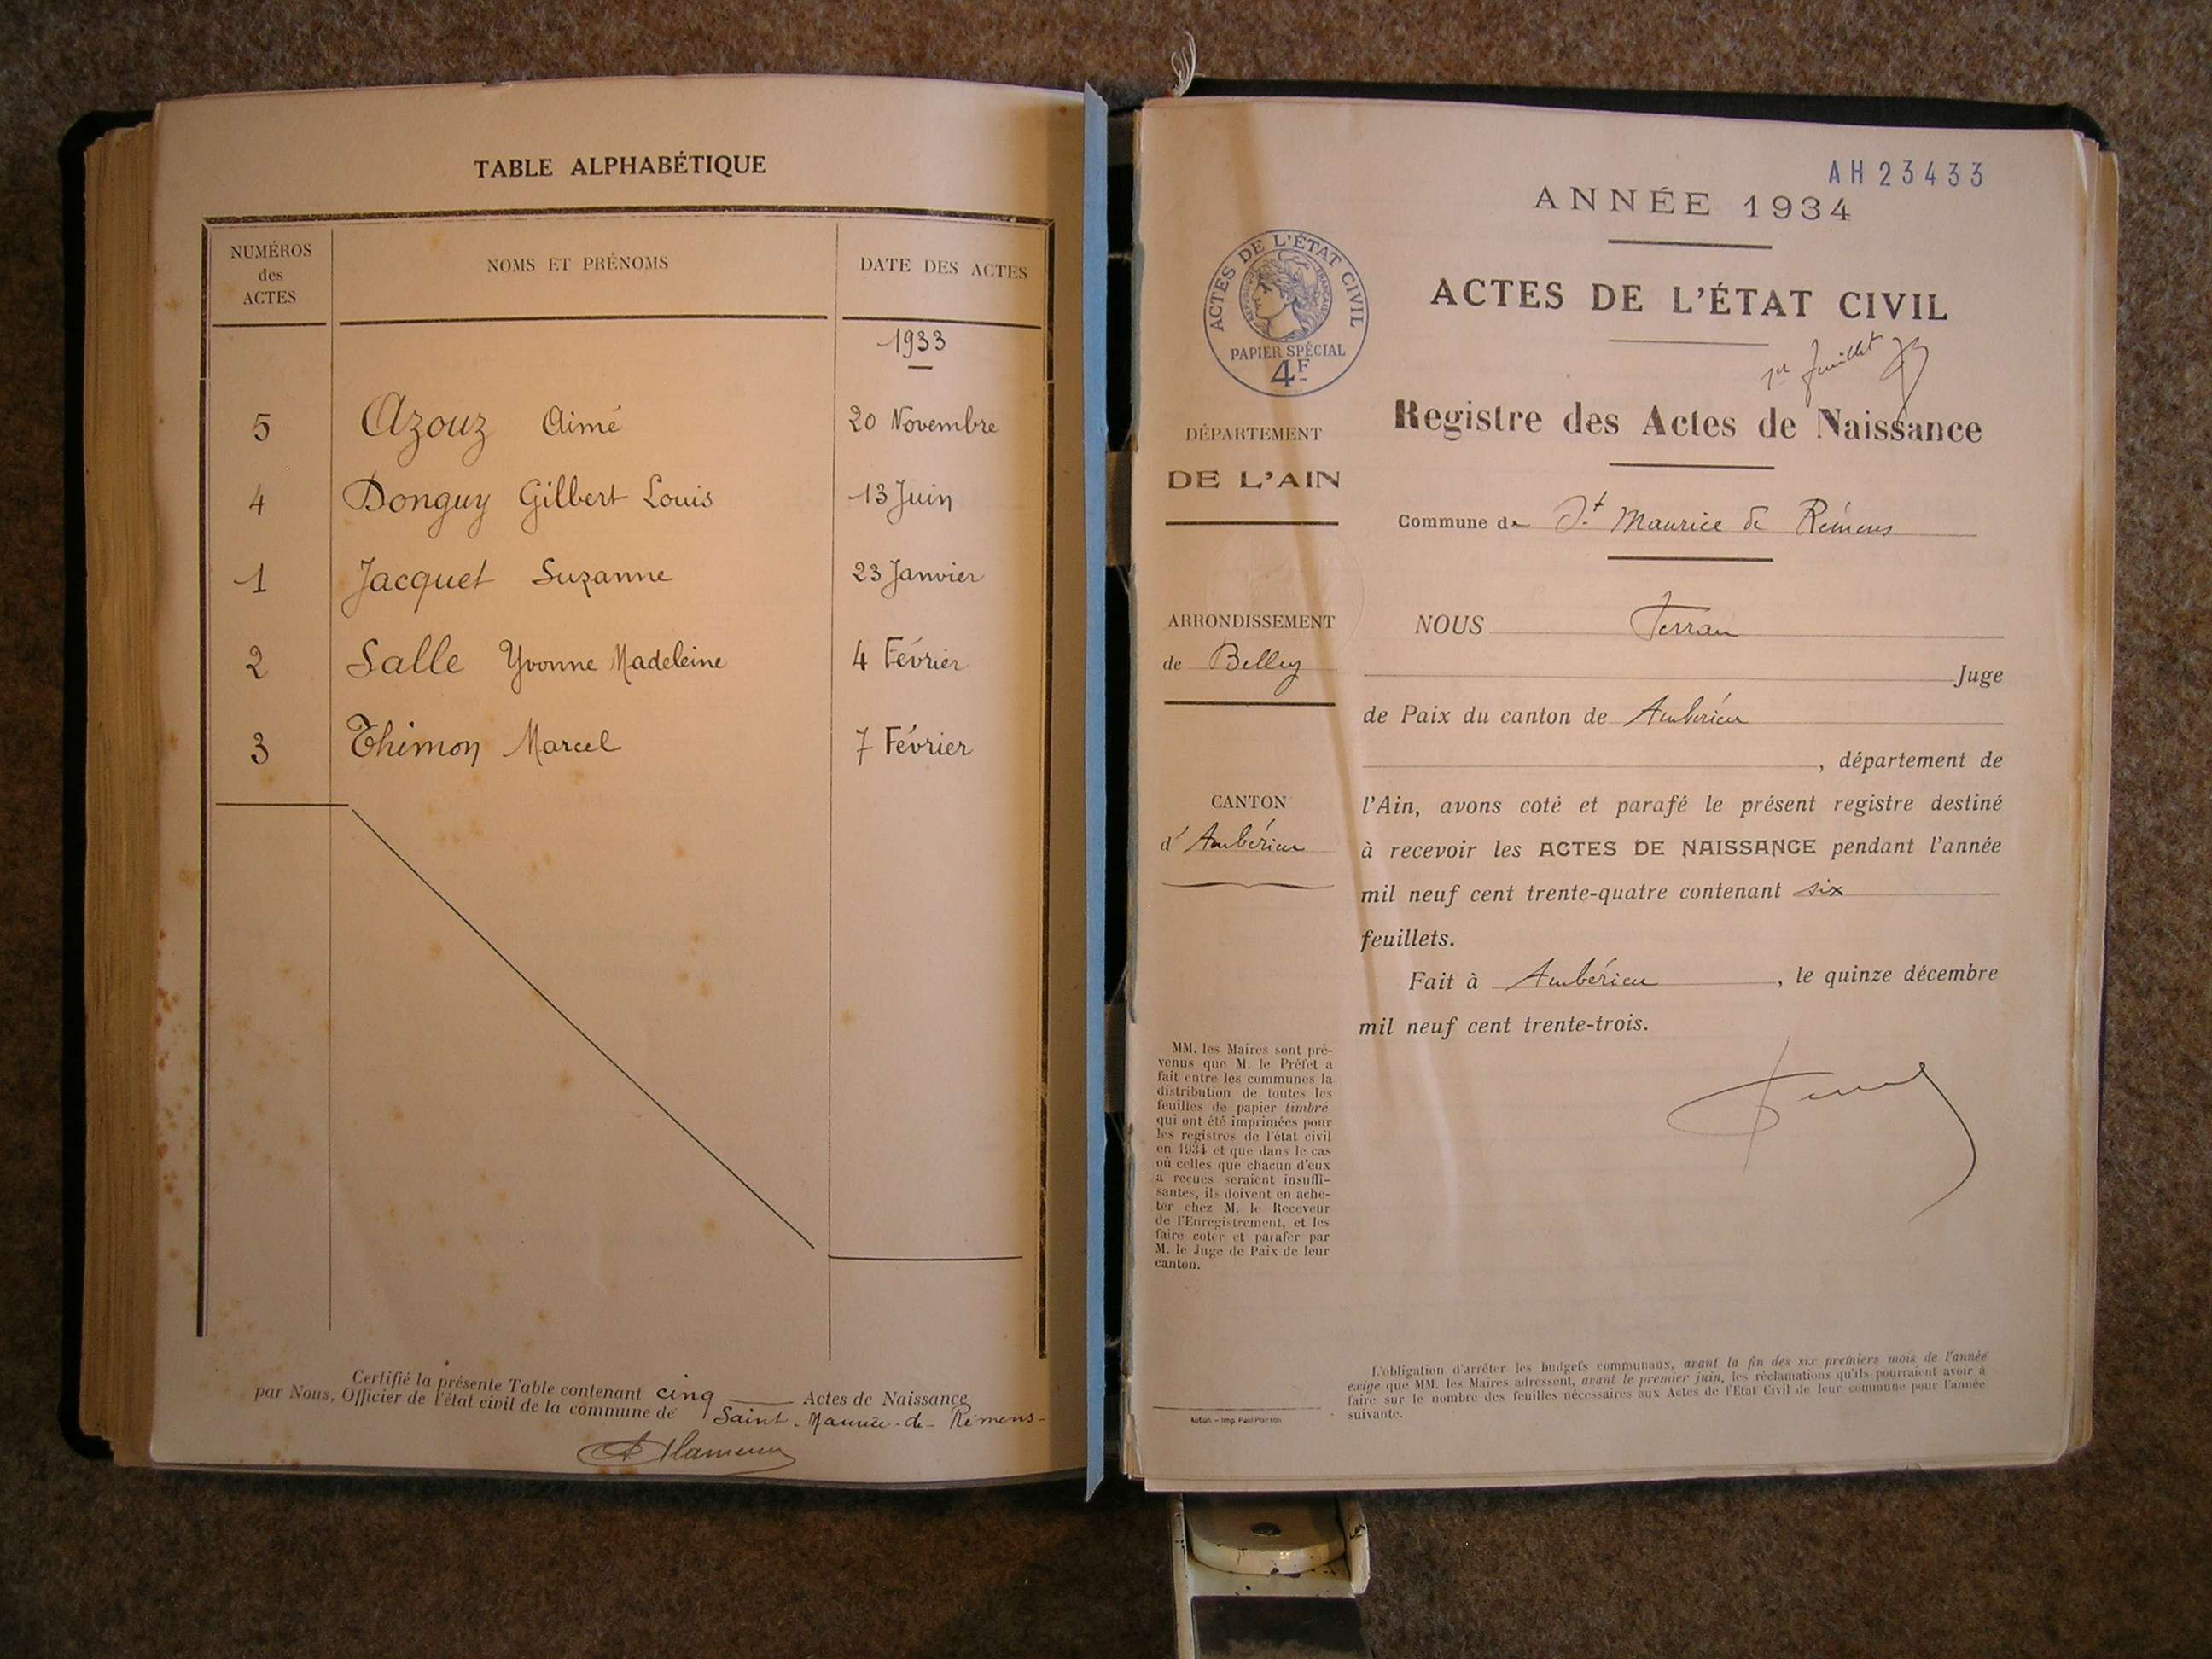 TABLE ALPHABÉTIQUE
NUMÉROS
des
ACTES
NOMS ET PRÉNOMS
DATE DES ACTES
1933
5 Azouz Aimé 20 Novembre
4 Donguy Gilbert Louis 13 Juin
1 Jacquet Suzanne 23 Janvier
2 Salle Yvonne Madeleine 4 Février
3 Thimon Marcel 7 Février
Certifié la présente Table contenant cinq Actes de Naissance
par Nous, Officier de l'état civil de la commune de Saint-Maurice-de-Rémens-
AH23433
ANNÉE 1934
ACTES DE L'ÉTAT CIVIL
1er feuillet
Registre des Actes de Naissance
Commune de St Maurice de Rémens
ACTES DE L'ÉTAT CIVIL
RÉPUBLIQUE FRANÇAISE
PAPIER SPÉCIAL
4F
DÉPARTEMENT
DE L'AIN
ARRONDISSEMENT
de Belley
CANTON
d'Ambérieu
MM. les Maires sont pré-
venus que M. le Préfet a
fait entre les communes la
distribution de toutes les
feuilles de papier timbré
qui ont été imprimées pour
les registres de l'état civil
en 1934 et que dans le cas
où celles que chacun d'eux
a reçues seraient insuffi-
santes, ils doivent en ache-
ter chez M. le Receveur
de l'Enregistrement, et les
faire coter et parafer par
M. le Juge de Paix de leur
canton.
NOUS Ferran
Juge
de Paix du canton de Ambérieu
, département de
l'Ain, avons coté et parafé le présent registre destiné
à recevoir les ACTES DE NAISSANCE pendant l'année
mil neuf cent trente-quatre contenant six
feuillets.
Fait à Ambérieu, le quinze décembre
mil neuf cent trente-trois.
L'obligation d'arrêter les budgets communaux, avant la fin des six premiers mois de l'année
exige que MM. les Maires adressent, avant le premier juin, les réclamations qu'ils pourraient avoir à
faire sur le nombre des feuilles nécessaires aux Actes de l'Etat Civil de leur commune pour l'année
suivante.